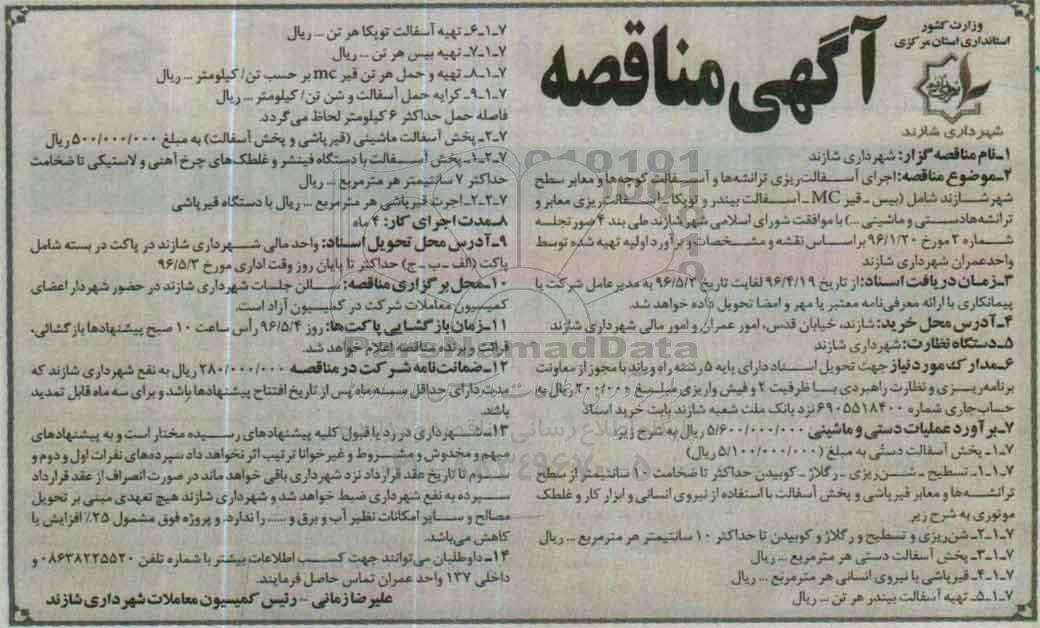 وزارت کشور
استانداری استان مرکزی
شهرداری شازند
آگهی مناقصه
۱ـ نام مناقصه گزار: شهرداری شازند
۲ـ موضوع مناقصه: اجرای آسفالت‌ریزی ترانشه‌ها و آسفالت کوچه‌ها و معابر سطح
شهر شازند شامل (بیس ـ قیر MC ـ آسفالت بیندر و توپکا ـ آسفالت‌ریزی معابر و
ترانشه‌ها دستی و ماشینی ...) با موافقت شورای اسلامی شهر شازند طی بند ۴ صورتجلسه
شماره ۲ مورخ ۹۶/۱/۲۰ براساس نقشه و مشخصات و برآورد اولیه تهیه شده توسط
واحد عمران شهرداری شازند
۳ـ زمان دریافت اسناد: از تاریخ ۹۶/۴/۱۹ لغایت تاریخ ۹۶/۵/۲ به مدیرعامل شرکت یا
پیمانکاری با ارائه معرفی‌نامه معتبر یا مهر و امضا تحویل داده خواهد شد.
۴ـ آدرس محل خرید: شازند، خیابان قدس، امور عمران و امور مالی شهرداری شازند
۵ـ دستگاه نظارت: شهرداری شازند
۶ـ مدارک مورد نیاز جهت تحویل اسناد دارای پایه ۵ رشته راه و باند با مجوز از معاونت
برنامه‌ریزی و نظارت راهبردی با ظرفیت ۲ و فیش واریزی مبلغ ۲۰۰/۰۰۰ ریال به
حساب جاری شماره ۶۹۰۵۵۱۸۴۰۰ نزد بانک ملت شعبه شازند بابت خرید اسناد
۷ـ برآورد عملیات دستی و ماشینی ۵/۶۰۰/۰۰۰/۰۰۰ ریال به شرح زیر:
۷ـ۱ـ پخش آسفالت دستی به مبلغ (۵/۱۰۰/۰۰۰/۰۰۰ ریال)
۷ـ۱ـ۱ـ تسطیح ـ شن‌ریزی ـ رگلاژ ـ کوبیدن حداکثر تا ضخامت ۱۰ سانتیمتر از سطح
ترانشه‌ها و معابر قیرپاشی و پخش آسفالت با استفاده از نیروی انسانی و ابزار کار و غلطک
موتوری به شرح زیر
۷ـ۱ـ۲ـ شن‌ریزی و تسطیح و رگلاژ و کوبیدن تا حداکثر ۱۰ سانتیمتر هر مترمربع ... ریال
۷ـ۱ـ۳ـ پخش آسفالت دستی هر مترمربع ... ریال
۷ـ۱ـ۴ـ قیرپاشی با نیروی انسانی هر مترمربع ... ریال
۷ـ۱ـ۵ـ تهیه آسفالت بیندر هر تن ... ریال
۷ـ۱ـ۶ـ تهیه آسفالت توپکا هر تن ... ریال
۷ـ۱ـ۷ـ تهیه بیس هر تن ... ریال
۷ـ۱ـ۸ـ تهیه و حمل هر تن قیر mc بر حسب تن/ کیلومتر ... ریال
۷ـ۱ـ۹ـ کرایه حمل آسفالت و شن تن/ کیلومتر ... ریال
فاصله حمل حداکثر ۶ کیلومتر لحاظ می‌گردد.
۷ـ۲ـ پخش آسفالت ماشینی (قیرپاشی و پخش آسفالت) به مبلغ ۵۰۰/۰۰۰/۰۰۰ ریال
۷ـ۲ـ۱ـ پخش آسفالت با دستگاه فینشر و غلطک‌های چرخ آهنی و لاستیکی تا ضخامت
حداکثر ۷ سانتیمتر هر مترمربع ... ریال
۷ـ۲ـ۲ـ اجرت قیرپاشی هر مترمربع ... ریال با دستگاه قیرپاشی
۸ـ مدت اجرای کار: ۴ ماه
۹ـ آدرس محل تحویل اسناد: واحد مالی شهرداری شازند در پاکت در بسته شامل
پاکت (الف ـ ب ـ ج) حداکثر تا پایان روز وقت اداری مورخ ۹۶/۵/۳
۱۰ـ محل برگزاری مناقصه: سالن جلسات شهرداری شازند در حضور شهردار اعضای
کمیسیون معاملات شرکت در کمیسیون آزاد است.
۱۱ـ زمان بازگشایی پاکت‌ها: روز ۹۶/۵/۴ رأس ساعت ۱۰ صبح پیشنهادها بازگشائی،
قرائت و برنده مناقصه اعلام خواهد شد.
۱۲ـ ضمانت‌نامه شرکت در مناقصه ۲۸۰/۰۰۰/۰۰۰ ریال به نفع شهرداری شازند که
مدت دارای حداقل سه ماه پس از تاریخ افتتاح پیشنهادها باشد و برای سه ماه قابل تمدید
باشد.
۱۳ـ شهرداری در رد یا قبول کلیه پیشنهادهای رسیده مختار است و به پیشنهادهای
مبهم و مخدوش و مشروط و غیرخوانا ترتیب اثر نخواهد داد سپرده‌های نفرات اول و دوم و
سوم تا تاریخ عقد قرارداد نزد شهرداری باقی خواهد ماند در صورت انصراف از عقد قرارداد
سپرده به نفع شهرداری ضبط خواهد شد و شهرداری شازند هیچ تعهدی مبنی بر تحویل
مصالح و سایر امکانات نظیر آب و برق و ...... را ندارد. و پروژه فوق مشمول ۲۵٪ افزایش یا
کاهش می‌باشد.
۱۴ـ داوطلبان می‌توانند جهت کسب اطلاعات بیشتر با شماره تلفن ۰۸۶۳۸۲۲۵۵۲۰ و
داخلی ۱۳۷ واحد عمران تماس حاصل فرمایند.
علیرضا زمانی ـ رئیس کمیسیون معاملات شهرداری شازند